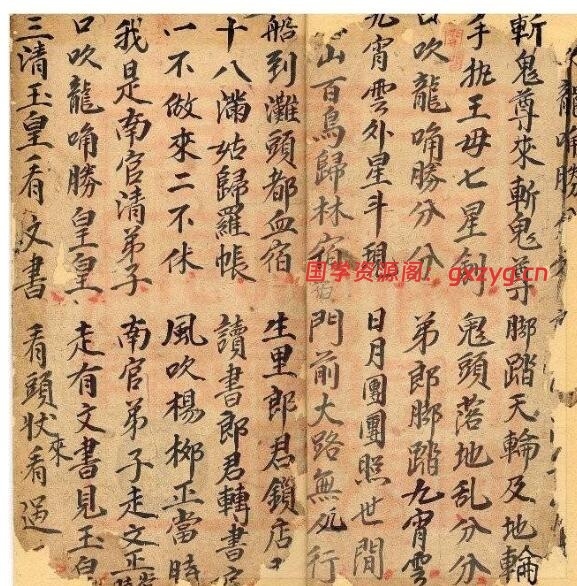 龍唃勝
斬鬼尊來斬鬼尊 脚踏天輪及地輪
手拖王母七星劍 鬼頭落地乱分分
吹龍唃勝分分 弟郎脚踏九霄雲
九霄雲外星斗現 日月團團照世間
山百鳥歸林宿 門前大路無行
船到灘頭都血宿 生里郎君鎖店
十八滿姑歸羅帳 讀書郎君轉書
一不做來二不休 風吹楊柳正當時
我是南官清弟子 南官弟子走文正
口吹龍唃勝皇皇 走有文書見玉皇
三清玉皇看文書 看頭狀來看過
国学资源阁 gxzyg.cn